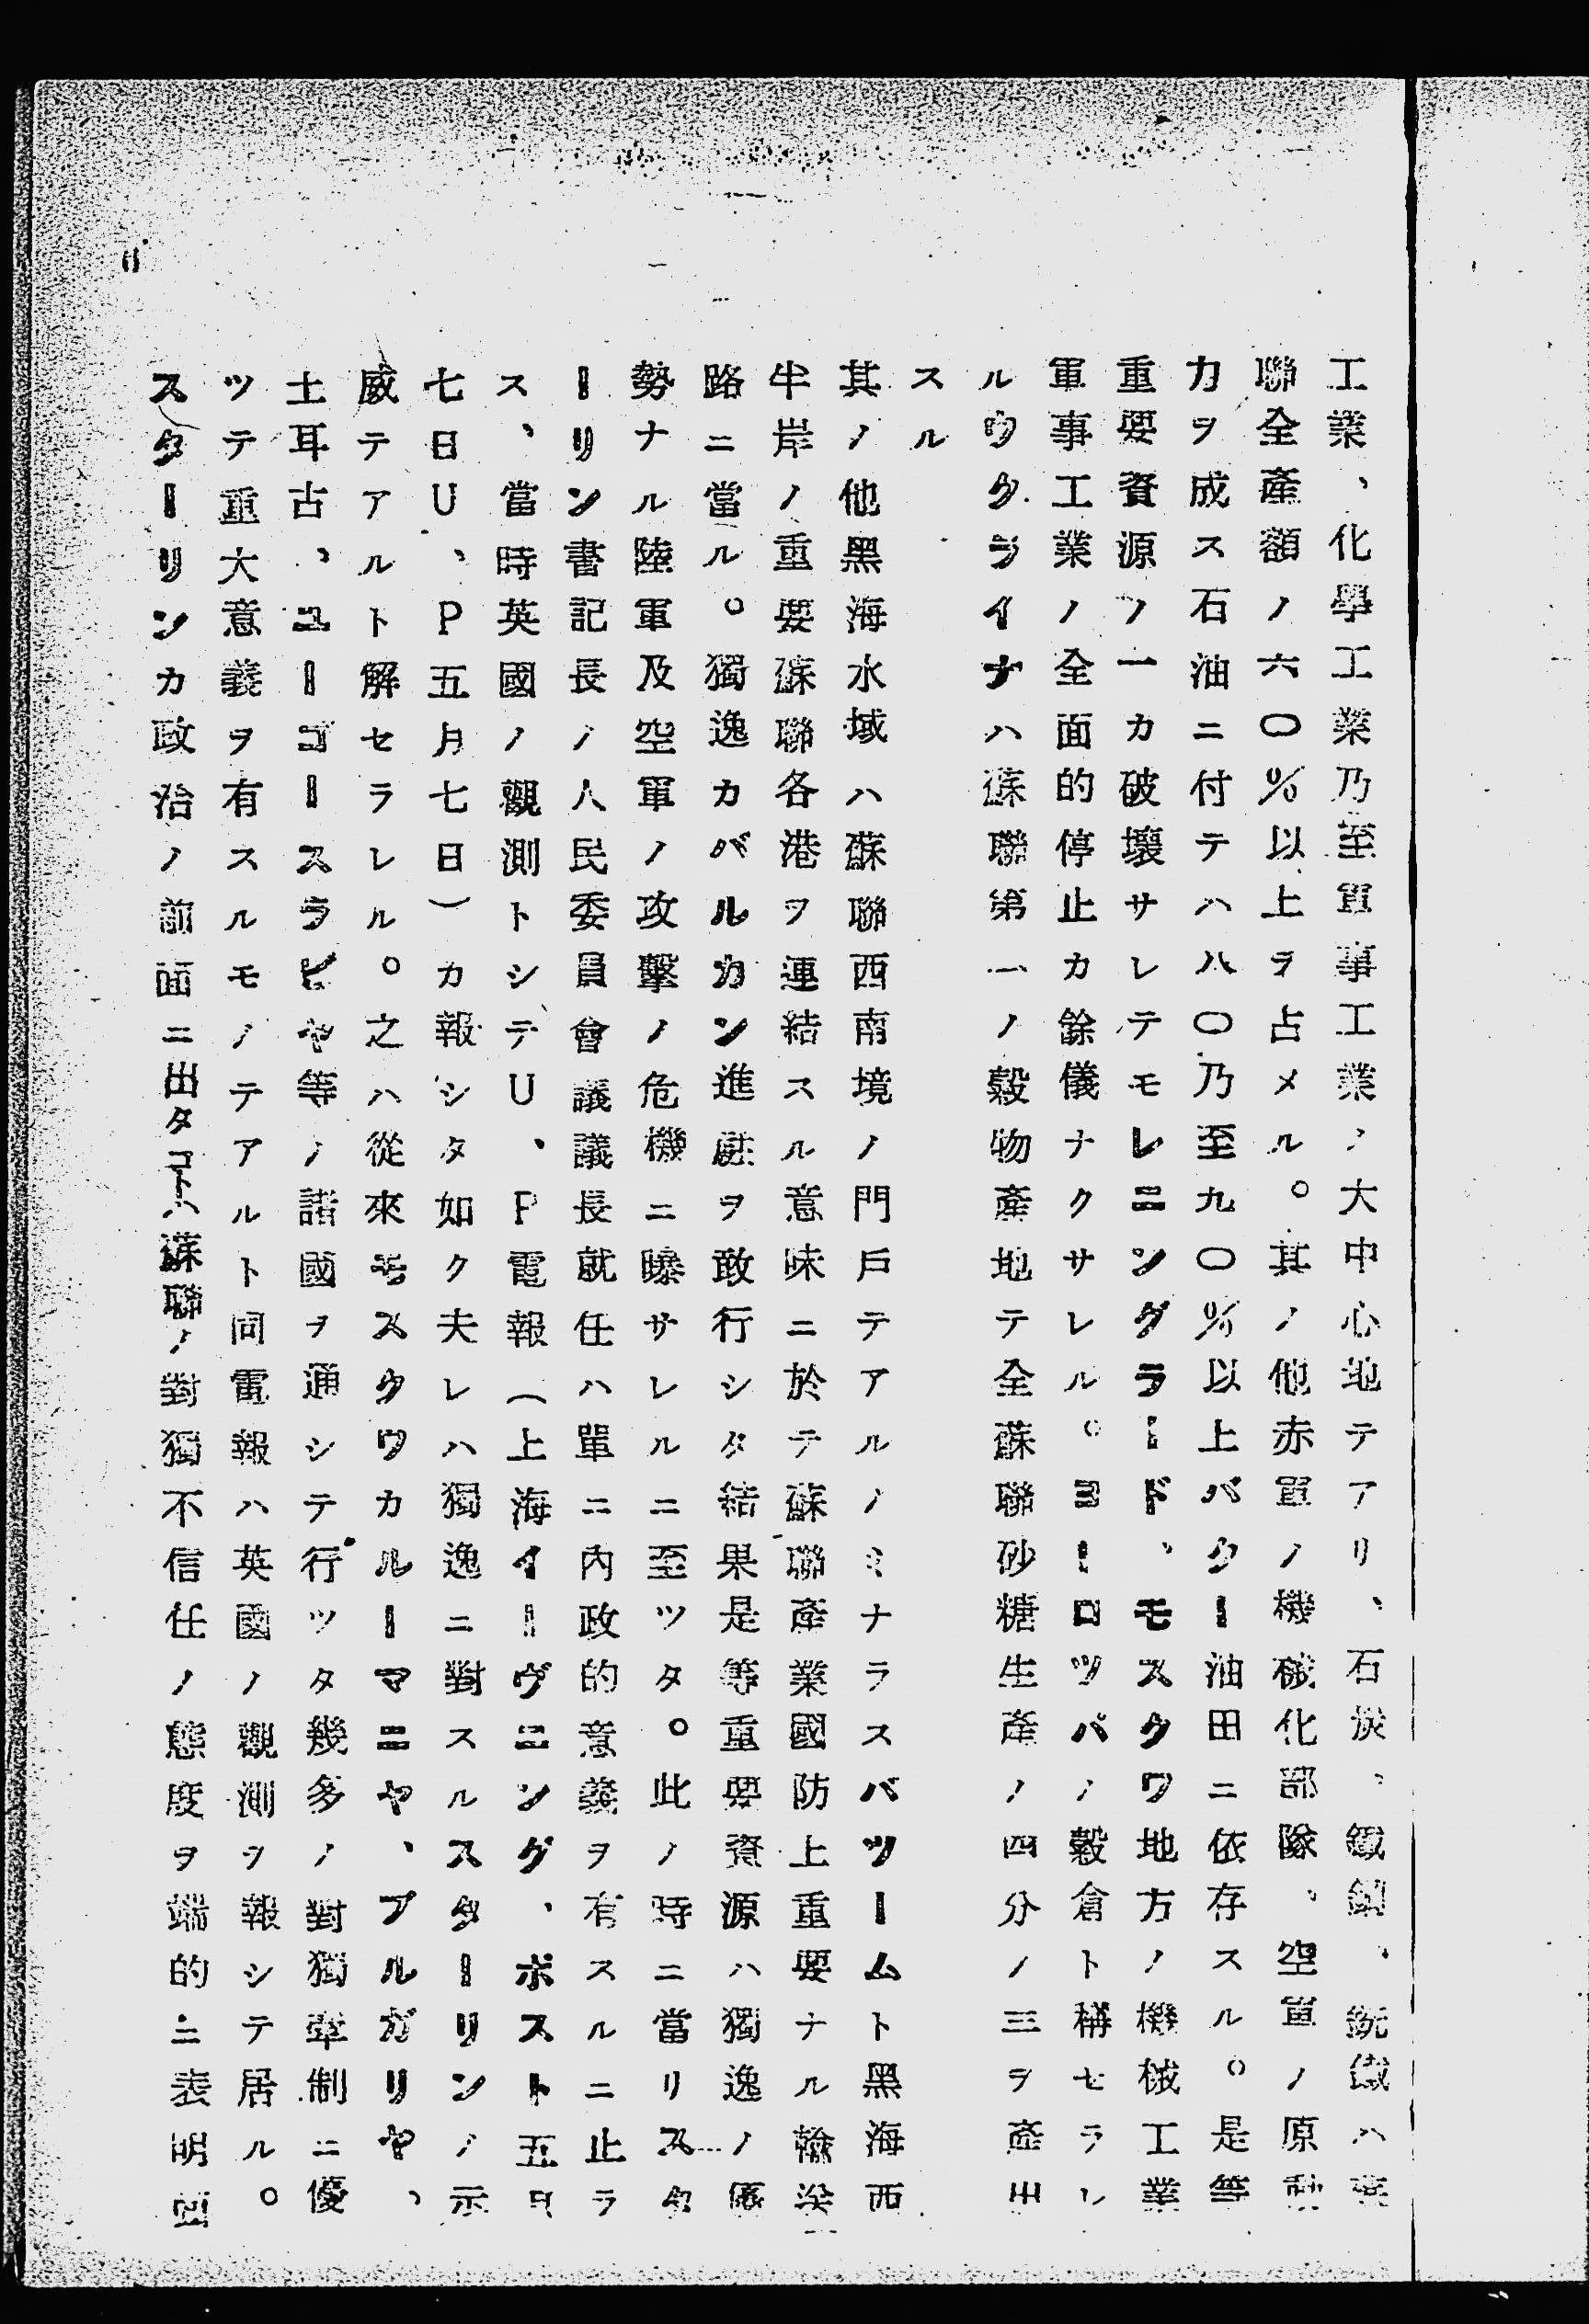 工業、化學工業乃至軍事工業ノ大中心地テアリ、石炭、鐵鋼、銑鐵ハ蘇
聯全產額ノ六〇％以上ヲ占メル。其ノ他赤軍ノ機械化部隊、空軍ノ原動
力ヲ成ス石油ニ付テハ八〇乃至九〇％以上バクー油田ニ依存スル。是等
重要資源ノ一カ破壞サレテモレニングラード、モスクワ地方ノ機械工業
軍事工業ノ全面的停止カ餘儀ナクサレル。ヨーロツパノ穀倉ト稱セラレ
ルウクライナハ蘇聯第一ノ穀物產地テ全蘇聯砂糖生產ノ四分ノ三ヲ產出
スル
其ノ他黑海水域ハ蘇聯西南境ノ門戶テアルノミナラスバツームト黑海西
半岸ノ重要蘇聯各港ヲ連結スル意味ニ於テ蘇聯產業國防上重要ナル輸送
路ニ當ル。獨逸カバルカン進駐ヲ敢行シタ結果是等重要資源ハ獨逸ノ優
勢ナル陸軍及空軍ノ攻擊ノ危機ニ曝サレルニ至ツタ。此ノ時ニ當リスタ
ーリン書記長ノ人民委員會議議長就任ハ單ニ內政的意義ヲ有スルニ止ラ
ス、當時英國ノ觀測トシテU、P電報（上海イーヴニング、ポスト五月
七日U、P五月七日）カ報シタ如ク夫レハ獨逸ニ對スルスターリンノ示
威テアルト解セラレル。之ハ從來モスクワカルーマニヤ、ブルガリヤ、
土耳古、ユーゴースラビヤ等ノ諸國ヲ通シテ行ツタ幾多ノ對獨牽制ニ優
ツテ重大意義ヲ有スルモノテアルト同電報ハ英國ノ觀測ヲ報シテ居ル。
スターリンカ政治ノ前面ニ出タコトハ蘇聯ノ對獨不信任ノ態度ヲ端的ニ表明